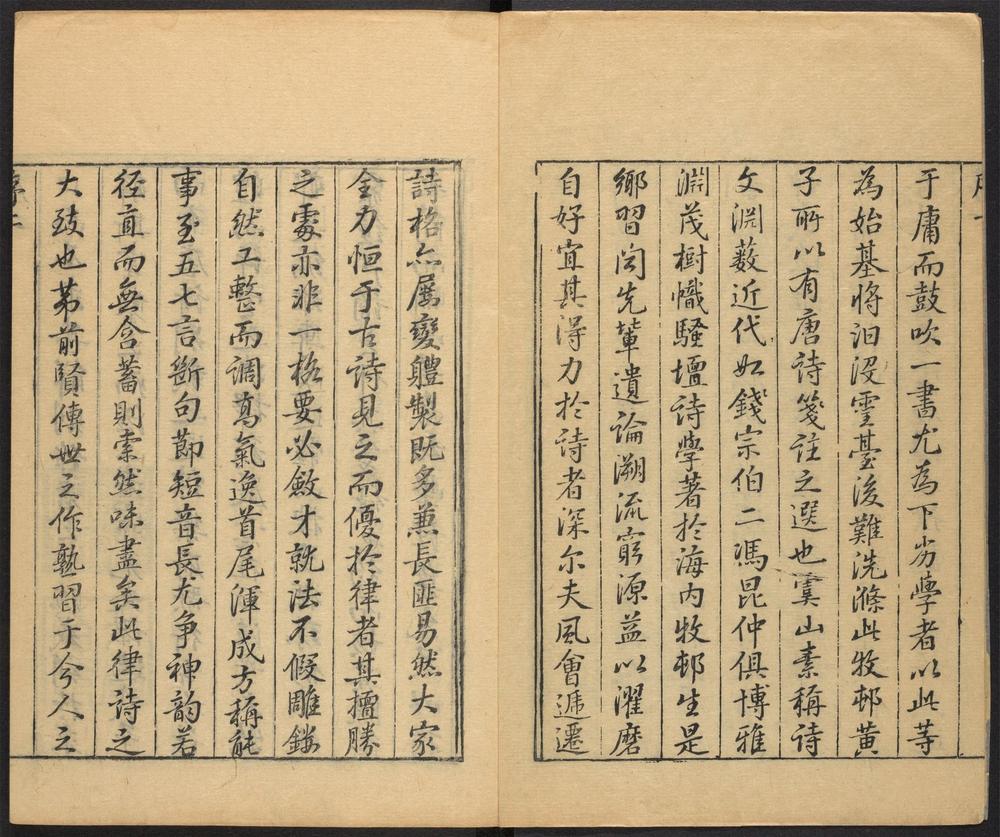 序一
于庸而鼓吹一書尤為下劣學者以此等
為始基將汩没靈臺後難洗滌此牧邨黄
子所以有唐詩箋註之選也虞山素稱詩
文淵薮近代如錢宗伯二馮昆仲俱博雅
淵茂樹幟騷壇詩學著於海内牧邨生是
鄉習闻先軰遺論溯流窮源益以濯磨
自好宜其得力於詩者深尔夫風會遞遷
詩格亦屬變軆製既多兼長匪易然大家
全力恒于古詩見之而優於律者其擅勝
之處亦非一格要必斂才就法不假雕鎪
自然工整而調髙氣逸首尾渾成方稱能
事至五七言斷句節短音長尤争神韵若
径直而無含蓄則索然味盡矣此律詩之
大致也第前賢傳世之作熟習于今人之
序二